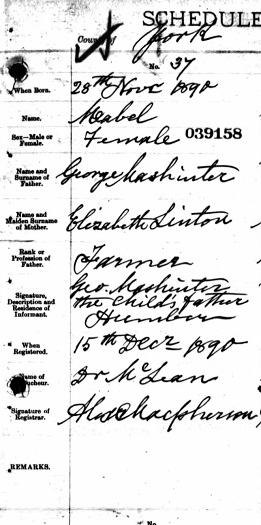 SCHEDULE
County of York
No. 37
When Born. 28th Novr 1890
Name. Mabel
Sex—Male or Female. Female 039158
Name and Surname of Father. George Mashinter
Name and Maiden Surname of Mother. Elizabeth Linton
Rank or Profession of Father. Farmer
Signature, Description and Residence of Informant. Geo. Mashinter
the child's father
Humber
When Registered. 15th Decr 1890
Name of Accoucheur. Dr McLean
Signature of Registrar. Alex Macpherson
REMARKS.
No.